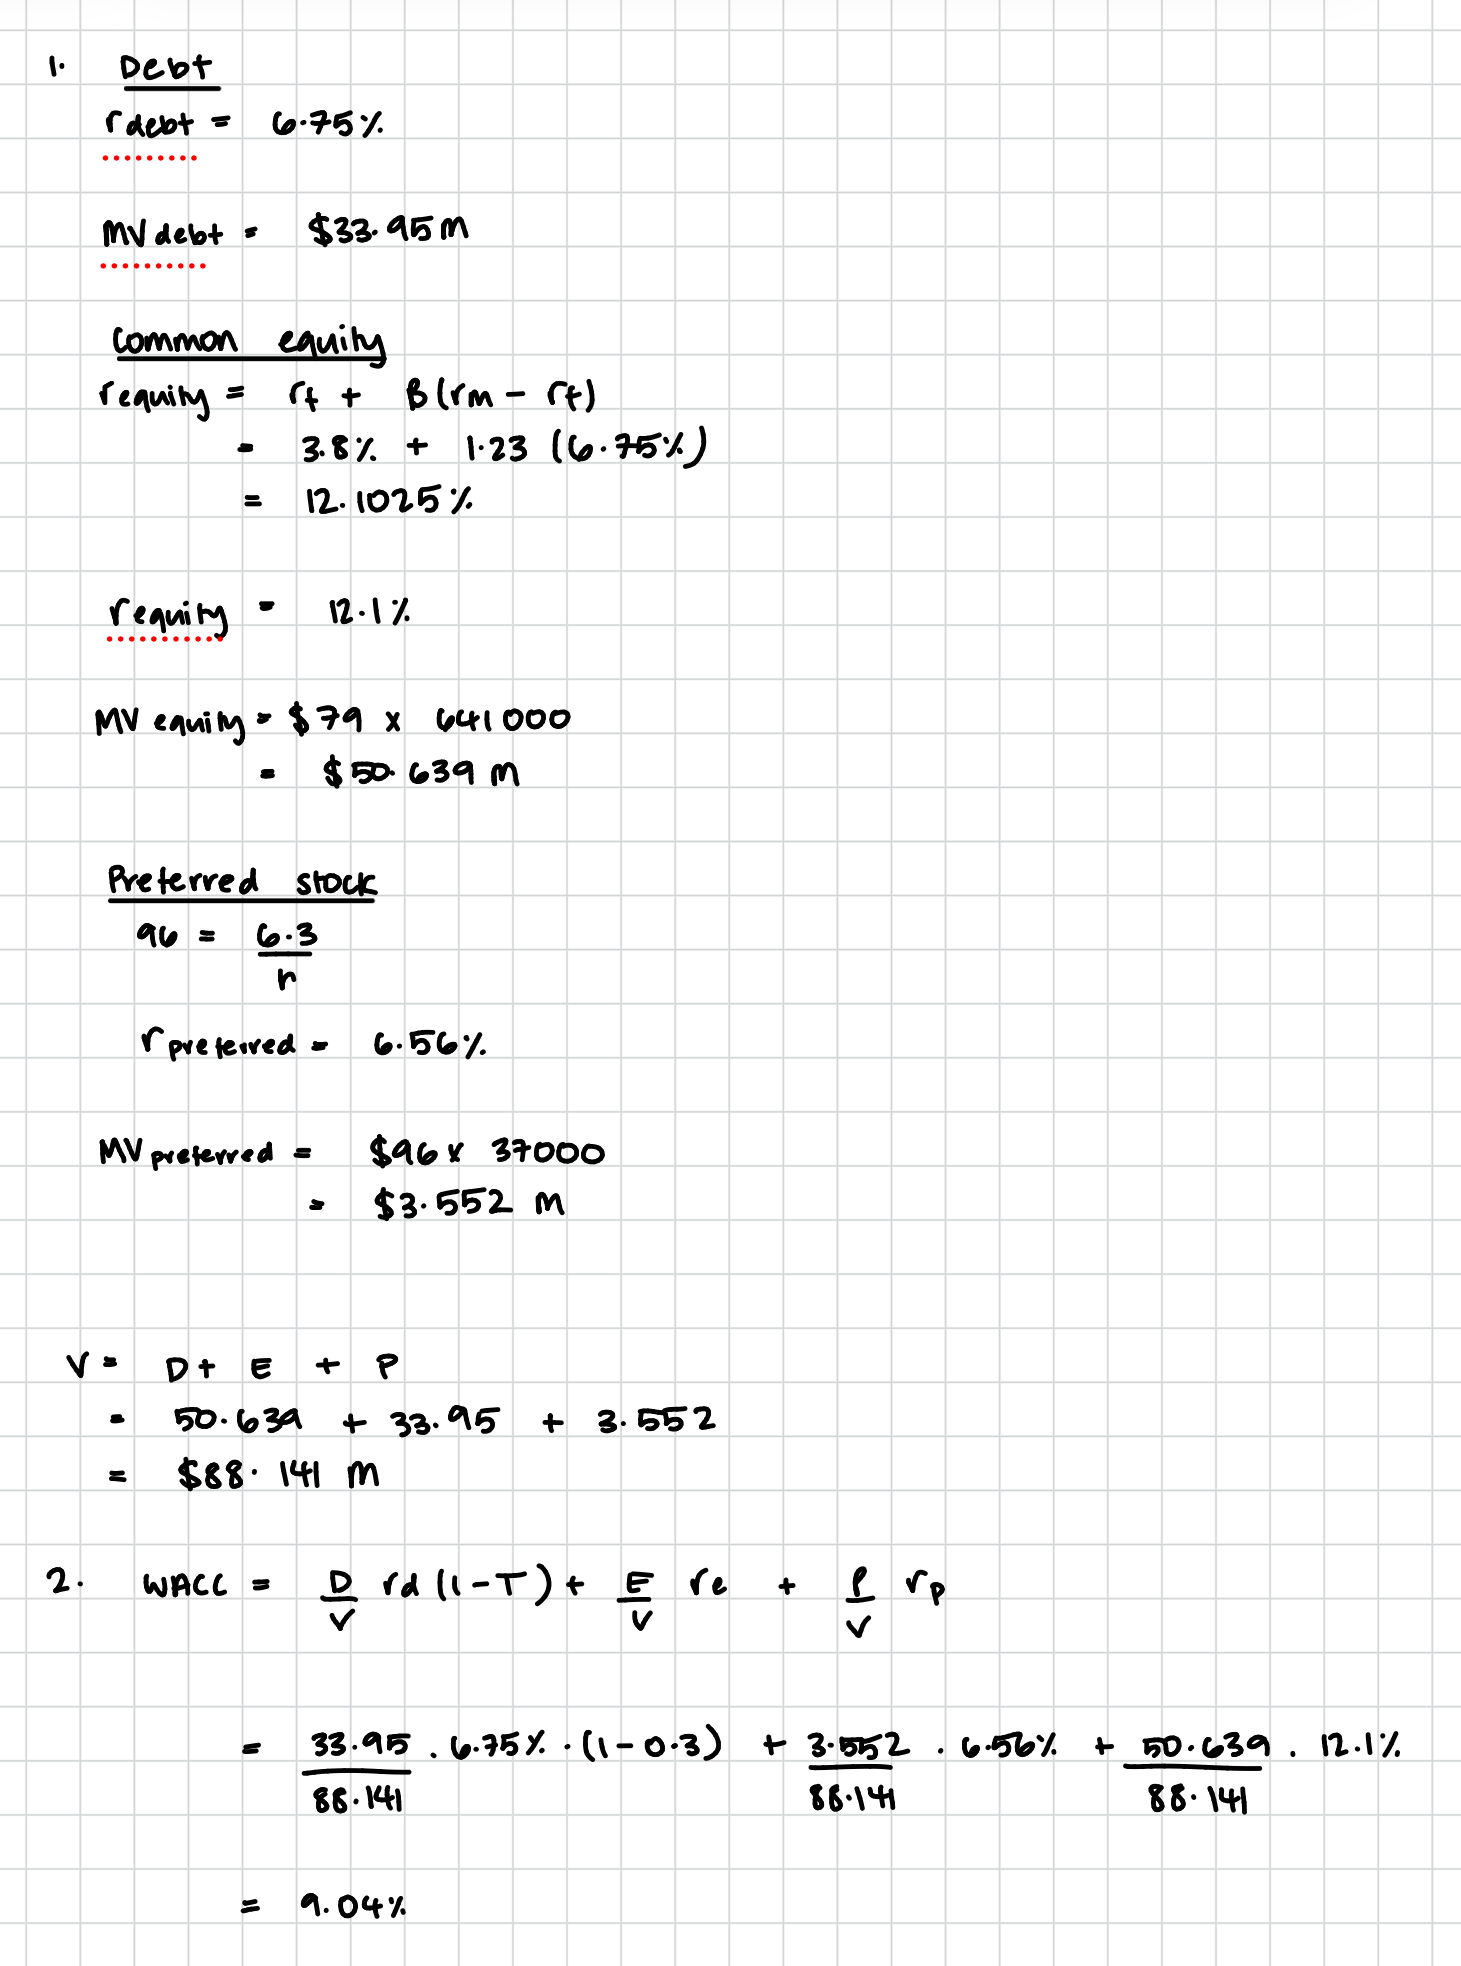 1. Debt
rdebt = 6.75%
MV debt = $33.95m
Common equity
requity = rf + B(rm - rf)
= 3.8% + 1.23 (6.75%)
= 12.1025%
requity = 12.1%
MV equity = $79 x 641000
= $50.639 m
Preferred stock
96 = 6.3
r
rpreferred = 6.56%
MV preferred = $96 x 37000
= $3.552 m
V = D + E + P
= 50.639 + 33.95 + 3.552
= $88.141 m
2. WACC = D rd (1-T) + E re + P rp
V V V
= 33.95 . 6.75% . (1-0.3) + 3.552 . 6.56% + 50.639 . 12.1%
88.141 88.141 88.141
= 9.04%